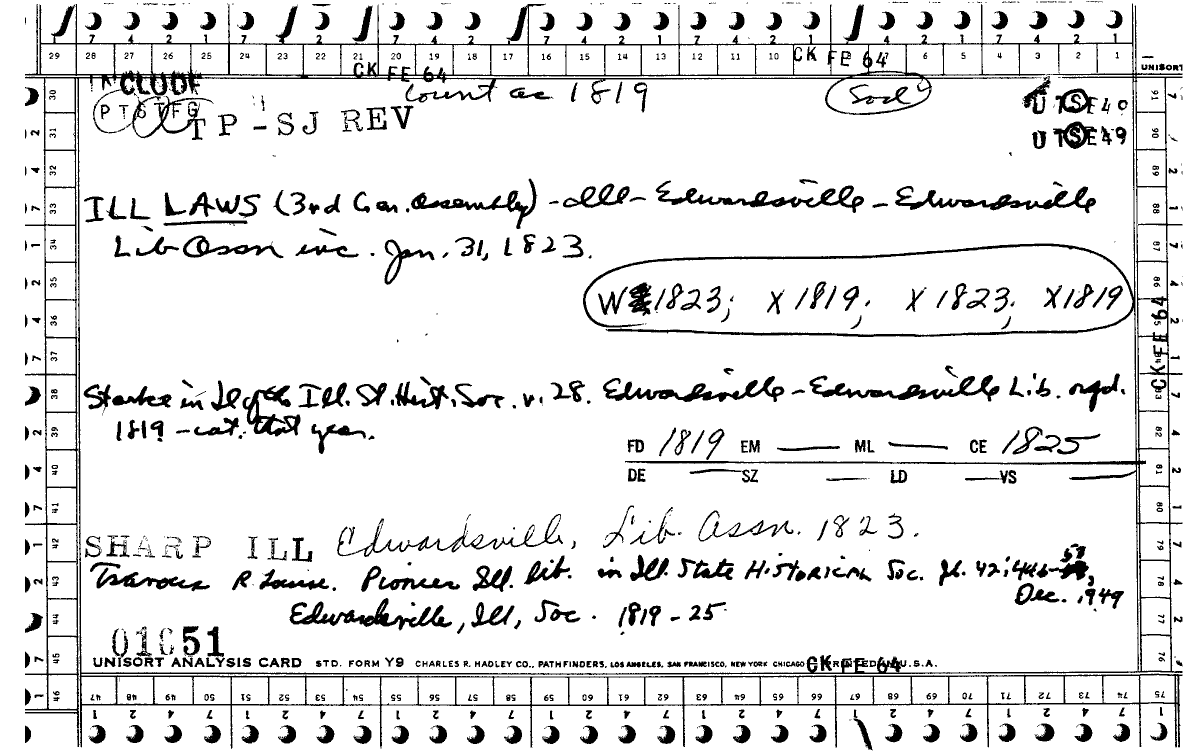 7 4 2 1 7 4 2 1 7 4 2 1 7 4 2 1 7 4 2 1 7 4 2 1 7 4 2 1
29 28 27 26 25 24 23 22 21 20 19 18 17 16 15 14 13 12 11 10 9 8 7 6 5 4 3 2 1
CK FE 64 CK FE 64 UNISORT
INCLUDE Count as 1819 Soc
PTSTFG TP-SJ REV UTSE40
UTSE49
ILL LAWS (3rd Gen. Assembly) - Ill - Edwardsville - Edwardsville
Lib Assn inc. Jan. 31, 1823.
W 1823; X 1819; X 1823; X1819
CK FE 64
Ill. St. Hist. Soc. v. 28. Edwardsville - Edwardsville Lib. orgd.
1819 - cat. that year.
FD 1819 EM — ML — CE 1825
DE — SZ — LD — VS —
SHARP ILL Edwardsville, Lib. Assn. 1823.
R. Louise. Pioneer Ill. Lib. in Ill. State Historical Soc. Jl. 42:446-
Dec. 1949
Edwardsville, Ill, Soc. 1819-25
01051
UNISORT ANALYSIS CARD STD. FORM Y9 CHARLES R. HADLEY CO., PATHFINDERS, LOS ANGELES, SAN FRANCISCO, NEW YORK CHICAGO CK FE 64 PRINTED IN U.S.A.
46 47 48 49 50 51 52 53 54 55 56 57 58 59 60 61 62 63 64 65 66 67 68 69 70 71 72 73 74 75